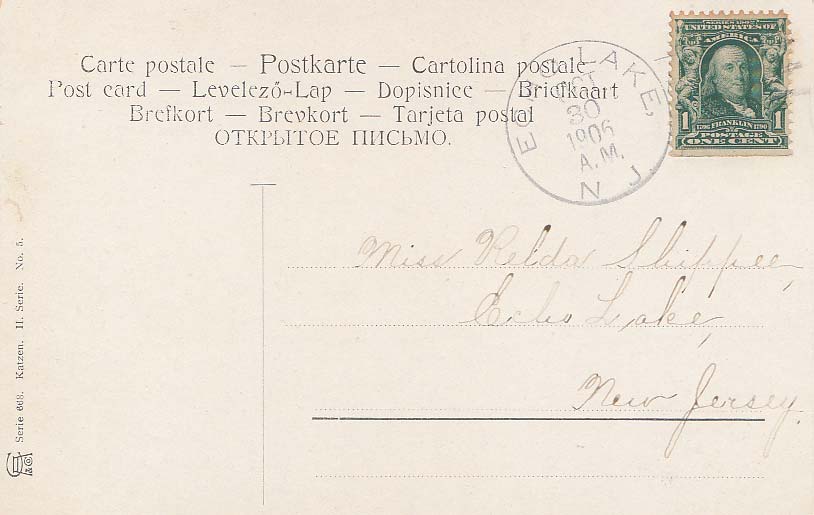 Carte postale — Postkarte — Cartolina postale
Post card — Levelező-Lap — Dopisnice — Briefkaart
Brefkort — Brevkort — Tarjeta postal
ОТКРЫТОЕ ПИСЬМО.
ECHO LAKE,
OCT
30
1906
A.M.
N. J.
SERIES 1902
UNITED STATES OF
AMERICA
1 1706 FRANKLIN 1790 1
POSTAGE
ONE CENT
Miss Relda Shippee,
Echo Lake,
New Jersey.
Serie 668. Katzen. II. Serie. No. 5.